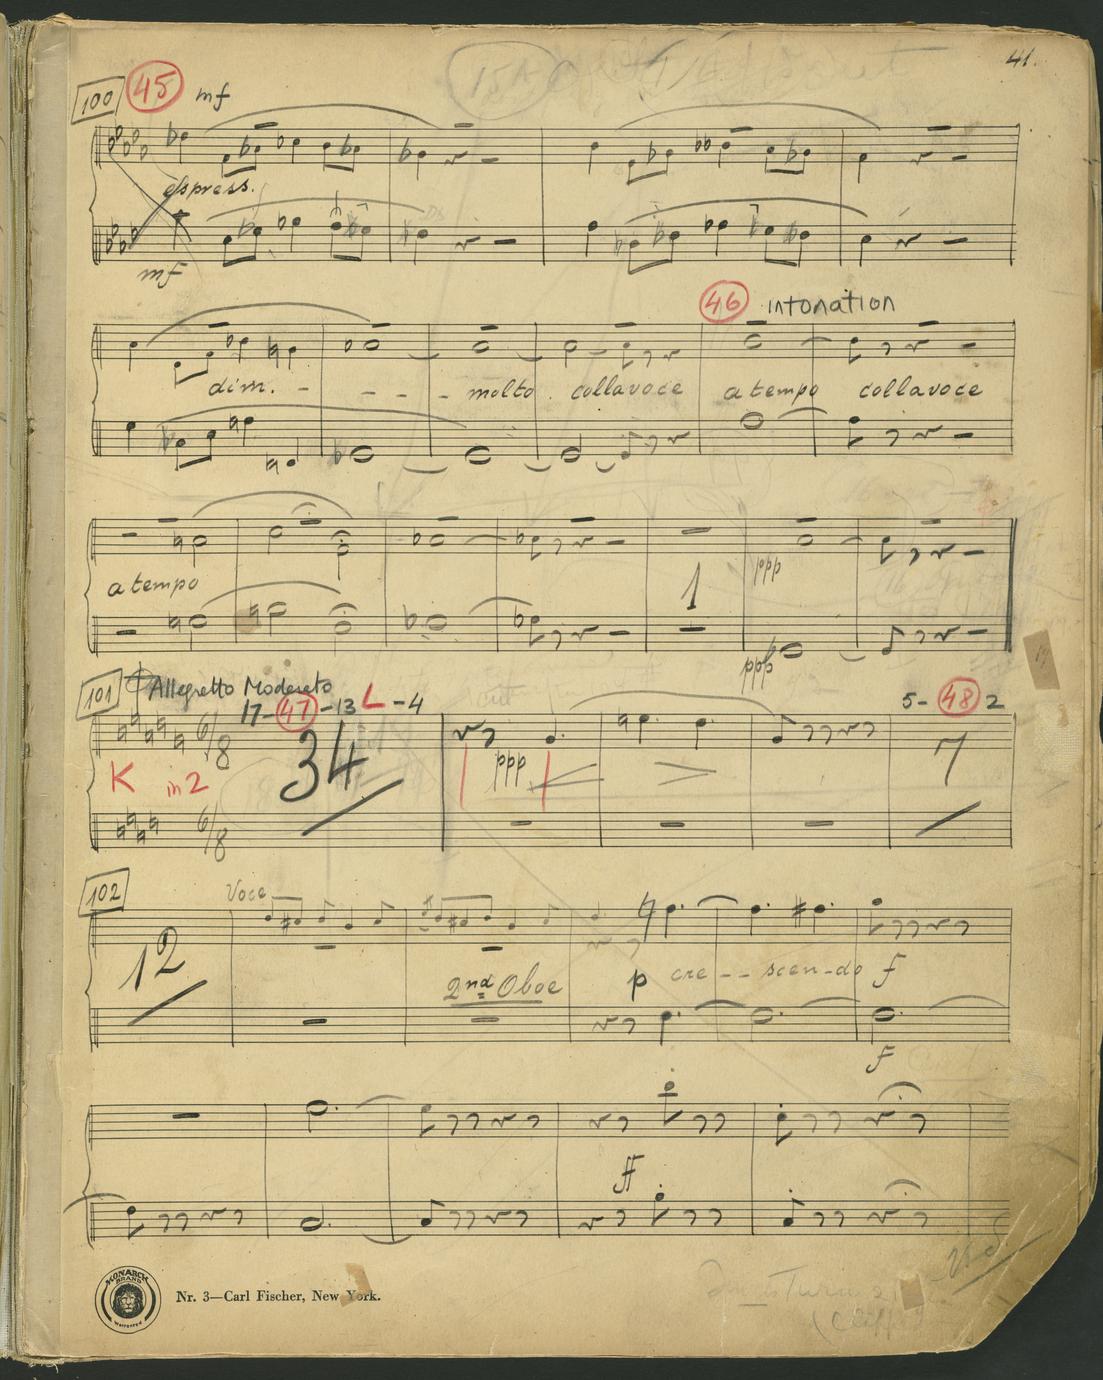 41.
100 45 mf
espress.
mf
46 intonation
dim. - - - - molto collavoce a tempo collavoce
a tempo
1
ppp
ppp
101 Allegretto Moderato
17-47-13 L -4
cut
5-48 2
6/8 34 7
K in 2
ppp
6/8
102
Voce
12
2nd Oboe
p cre - - scen-do f
f
ff
MONARCH BRAND
WARRANTED
Nr. 3—Carl Fischer, New York.